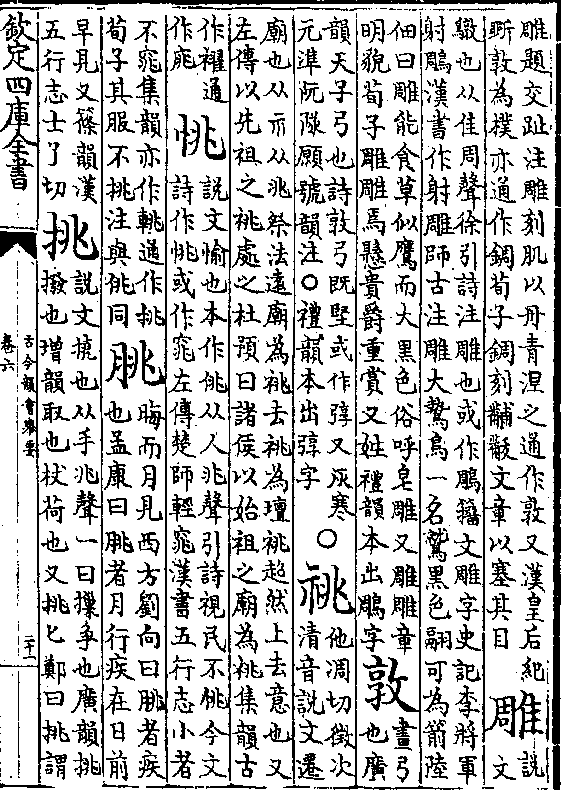 雕題交趾注雕刻肌以丹青涅之通作敦又漢皇后紀
斲敦為撲亦通作錭荀子錭刻黼黻文章以塞其目
雕
說
文
鷻也从隹周聲徐引詩注雕也或作鵰籀文雕字史記李將軍
射鵰漢書作射雕師古注雕大鷙鳥一名鷲黑色翮可為箭陸
佃曰雕能食草似鷹而大黑色俗呼皂雕又雕雕章
明貌荀子雕雕焉懸貴爵重賞又姓禮韻本出鵰字
敦
畫弓
也廣
韻天子弓也詩敦弓既堅或作弴又灰寒
元準阮隊願號韻注○禮韻本出弴字
○祧
他凋切徵次
清音說文遷
廟也从示从兆祭法遠廟為祧去祧為壇祧超然上去意也又
左傳以先祖之祧處之杜預曰諸侯以始祖之廟為祧集韻古
作䄻通
作庣
恌
說文愉也本作佻从人兆聲引詩視民不佻今文
詩作恌或作窕左傳楚師輕窕漢書五行志小者
不窕集韻亦作通作挑
荀子其服不挑注與佻同
朓
晦而月見西方劉向曰朓者疾
也孟康曰朓者月行疾在日前
早見又篠韻漢
五行志士了切
挑
說文撓也从手兆聲一曰摷爭也廣韻挑
撥也增韻取也杖荷也又挑匕鄭曰挑謂
欽定四庫全書
古今韻會舉要
卷六
二十一